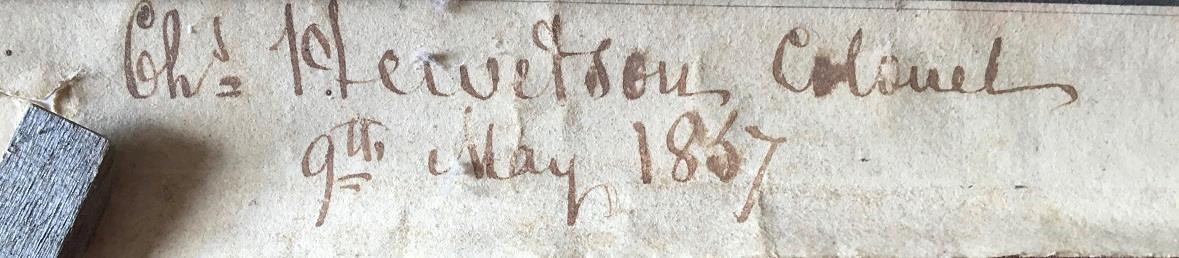 Chs Hewetson Colonel
9th May 1867